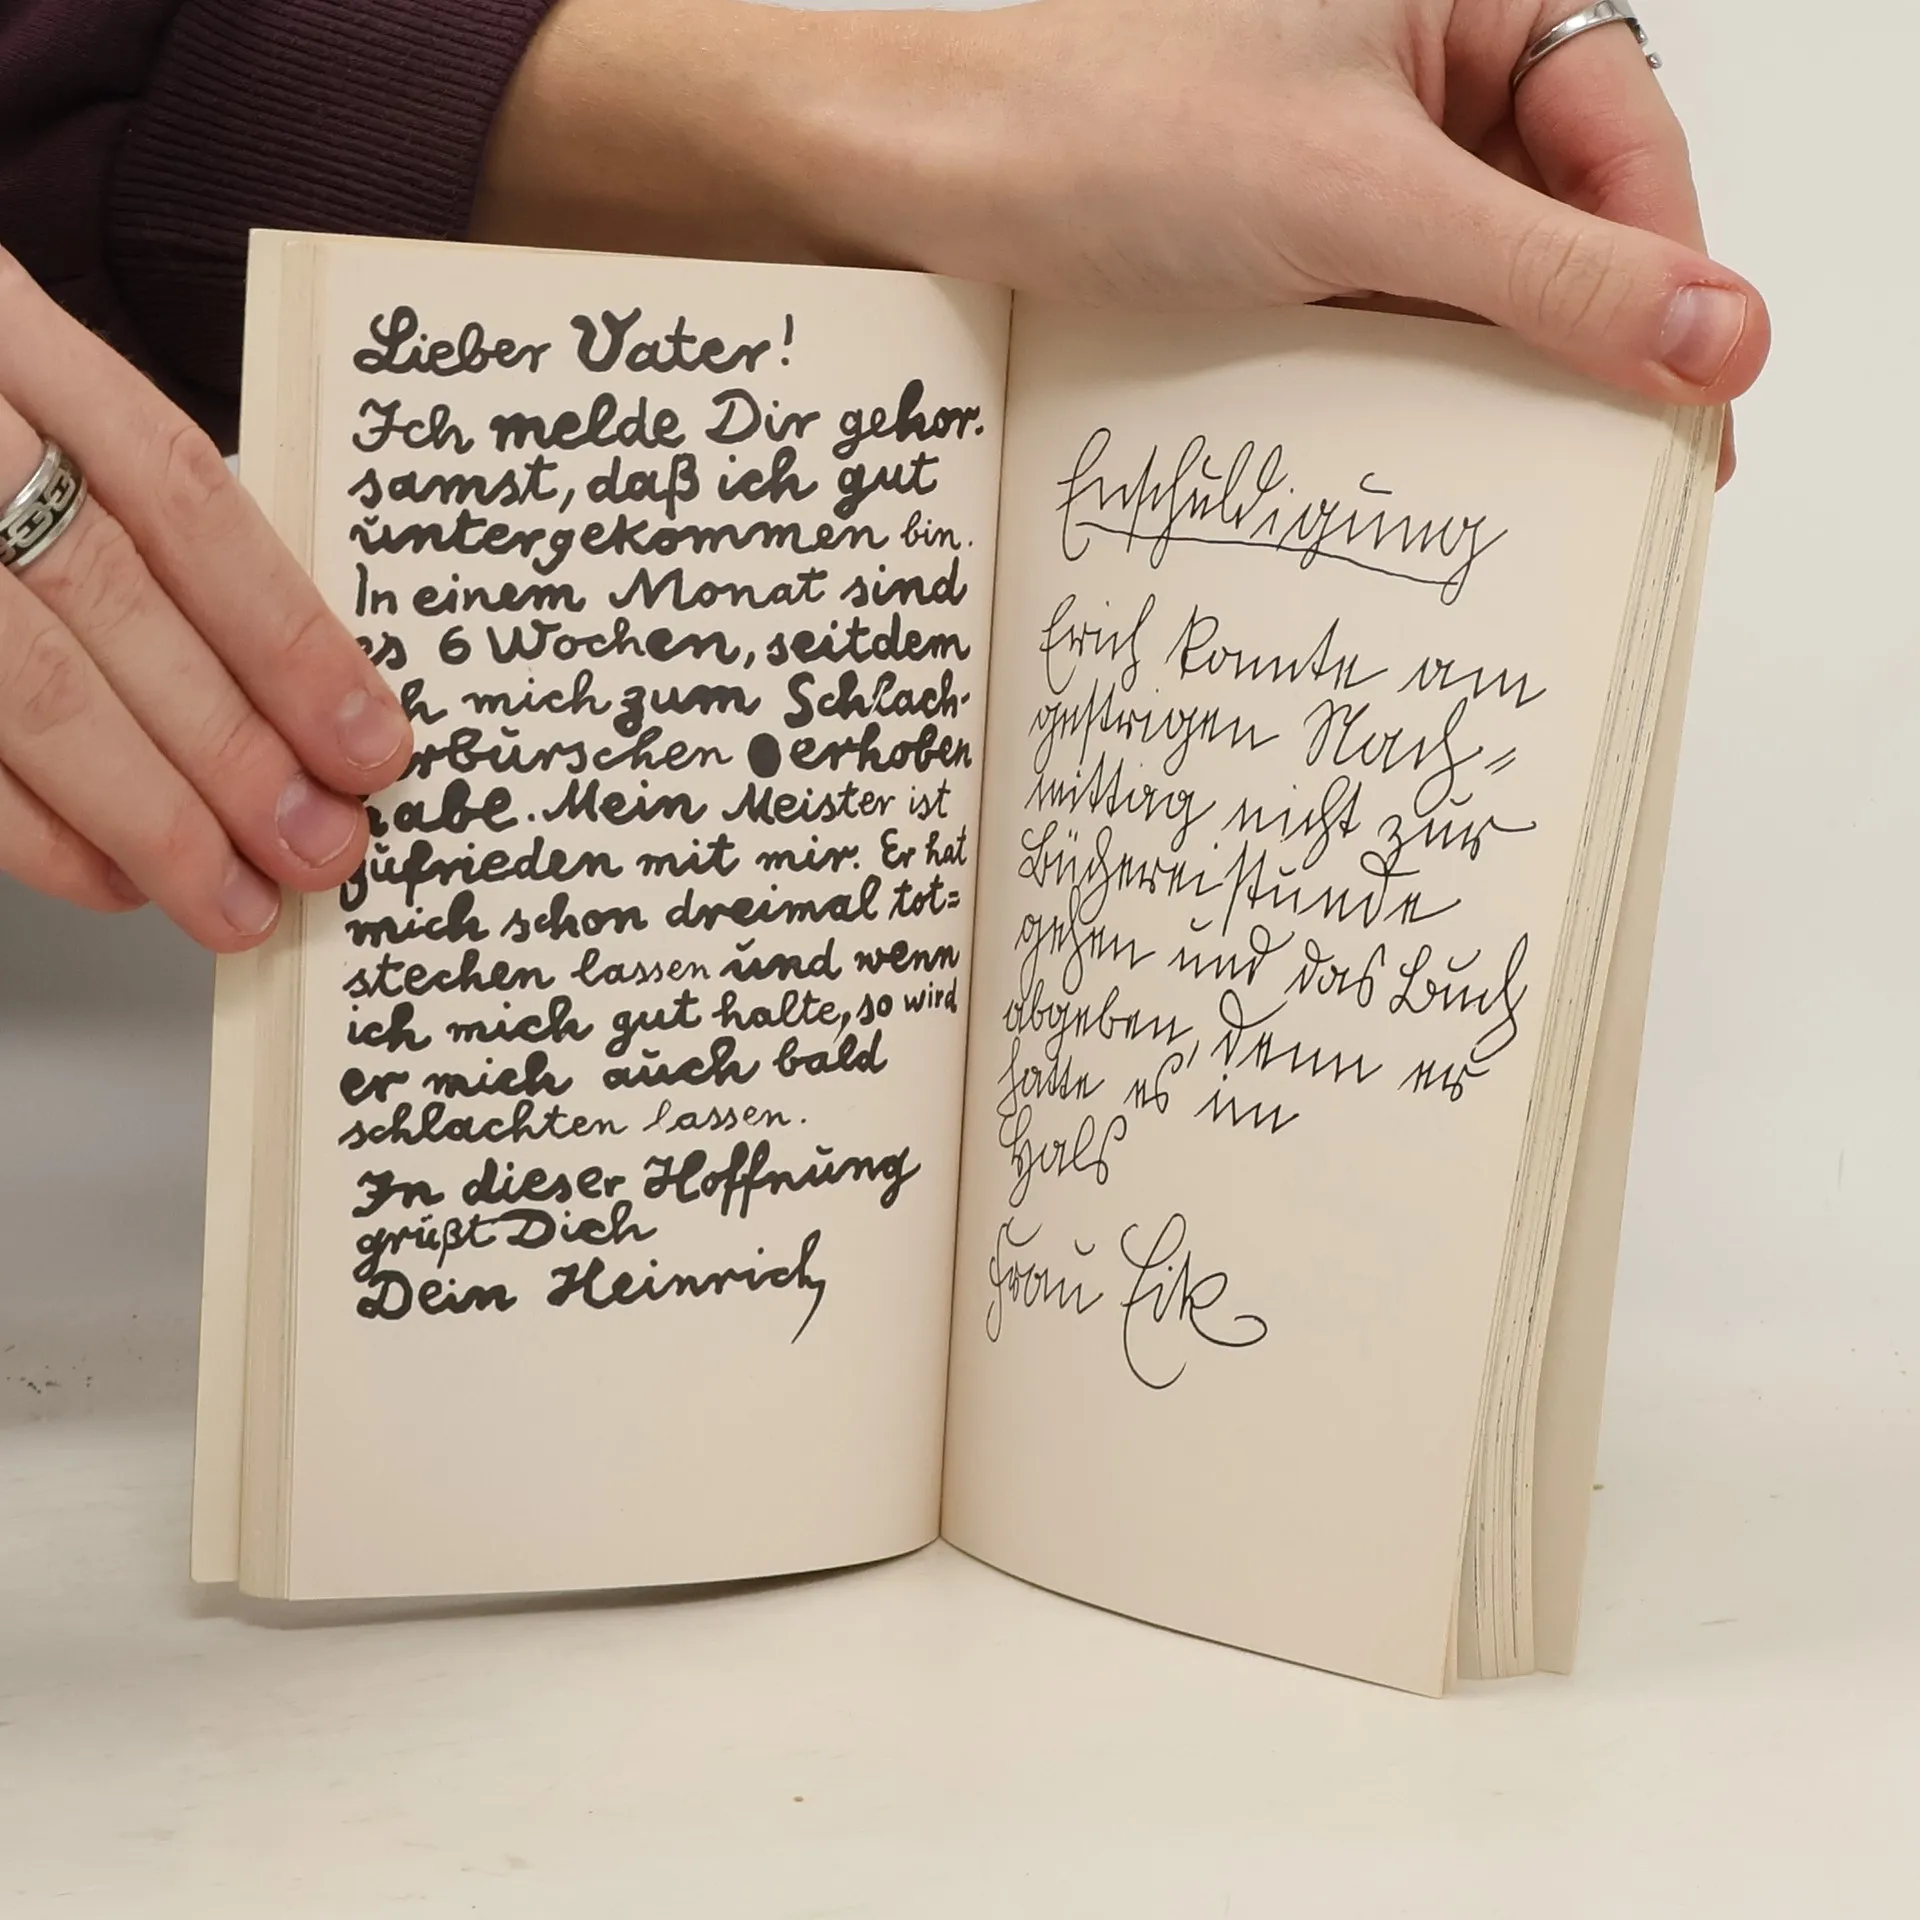 Lieber Vater!
Ich melde Dir gehor-
samst, daß ich gut
untergekommen bin.
In einem Monat sind
es 6 Wochen, seitdem
h mich zum Schlach-
rburschen erhoben
habe. Mein Meister ist
zufrieden mit mir. Er hat
mich schon dreimal tot=
stechen lassen und wenn
ich mich gut halte, so wird
er mich auch bald
schlachten lassen.
In dieser Hoffnung
grüßt Dich
Dein Heinrich
Enschuldigung
Erich konnte am
gestrigen Nach=
mittag nicht zur
Büchereistunde
gehen und das Buch
abgeben, denn er
hatte es im
Hals
Frau Eik